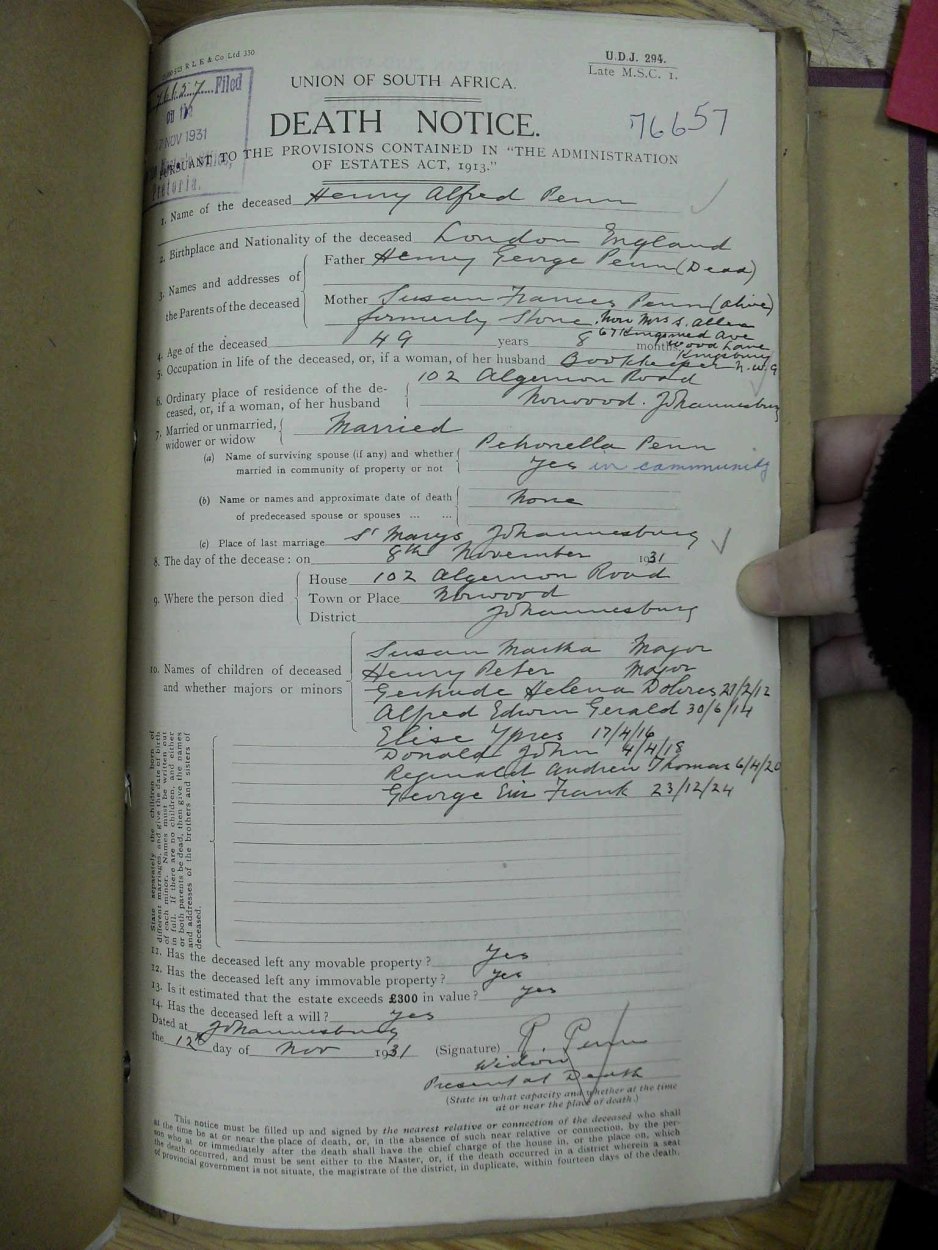 R L E & Co Ltd 330
U.D.J. 294.
Late M.S.C. 1.
Filed
on the
NOV 1931
Pretoria.
UNION OF SOUTH AFRICA.
DEATH NOTICE.
76657
PURSUANT TO THE PROVISIONS CONTAINED IN "THE ADMINISTRATION
OF ESTATES ACT, 1913."
1. Name of the deceased Henry Alfred Penn
2. Birthplace and Nationality of the deceased London England
3. Names and addresses of the Parents of the deceased
Father Henry George Penn (Dead)
Mother Susan Frances Penn (alive)
formerly Stone. Now Mrs S. Allen
67 Kingsmead Ave
Wood Lane
Kingsbury
N.W.9
4. Age of the deceased 49 years 8 months
5. Occupation in life of the deceased, or, if a woman, of her husband Bookkeeper
6. Ordinary place of residence of the deceased, or, if a woman, of her husband
102 Algernon Road
Norwood. Johannesburg
7. Married or unmarried, widower or widow Married
(a) Name of surviving spouse (if any) and whether married in community of property or not
Petronella Penn
Yes in community
(b) Name or names and approximate date of death of predeceased spouse or spouses ... ...
None
(c) Place of last marriage St Marys Johannesburg
8. The day of the decease: on 8th November 1931
9. Where the person died
House 102 Algernon Road
Town or Place Norwood
District Johannesburg
10. Names of children of deceased and whether majors or minors
Susan Martha Major
Henry Peter Major
Gertrude Helena Dolores 27/2/12
Alfred Edwin Gerald 30/6/14
Elise Ypres 17/4/16
Donald John 4/4/18
Reginald Andrew Thomas 6/4/20
George Frank 23/12/24
State separately the children born of
different marriages, and give the date of birth
of each minor. Names must be written out
in full. If there are no children, and either
or both parents be dead, then give the names
and addresses of the brothers and sisters of
deceased.
11. Has the deceased left any movable property? Yes
12. Has the deceased left any immovable property? Yes
13. Is it estimated that the estate exceeds £300 in value? Yes
14. Has the deceased left a will? Yes
Dated at Johannesburg
the 12th day of Nov 1931 (Signature) P. Penn
Widow
Present at Death
(State in what capacity and whether at the time
at or near the place of death.)
This notice must be filled up and signed by the nearest relative or connection of the deceased who shall
at the time be at or near the place of death, or, in the absence of such near relative or connection, by the per-
son who at or immediately after the death shall have the chief charge of the house in, or the place on, which
the death occurred, and must be sent either to the Master, or, if the death occurred in a district wherein a seat
of provincial government is not situate, the magistrate of the district, in duplicate, within fourteen days of the death.